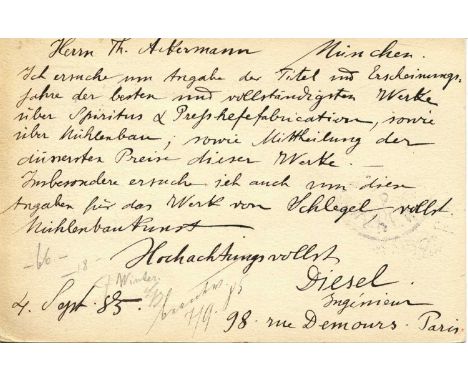 Herrn Th. Ackermann München.
Ich ersuche um Angabe der Titel und Erscheinungs-
jahre der besten und vollständigsten Werke
über Spiritus & Presshefefabrication, sowie
über Mühlenbau; sowie Mittheilung der
äussersten Preise dieser Werke. —
Insbesondere ersuche ich auch um dien
Angaben für das Werk von Schlegel vollst.
Mühlenbaukunst
Hochachtungsvollst
-66-
-18-
Winter
Diesel.
Ingénieur
4. Sept. 85.
7/9. 85
98. rue Demours. Paris.